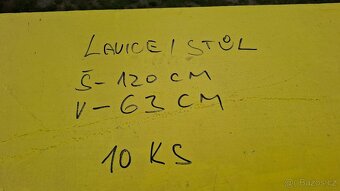 LAVICE / STŮL
Š-120 CM
V-63 CM
10 KS
© Bazos.cz